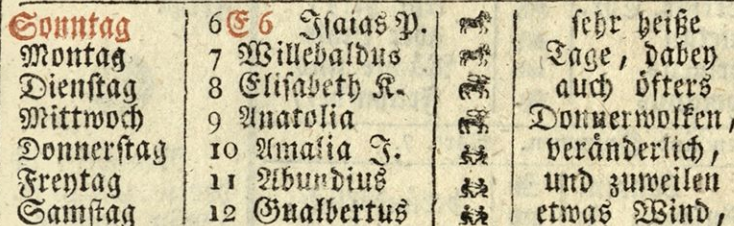 Sonntag 6 E 6 Isaias P. sehr heiße
Montag 7 Willebaldus Tage, dabey
Dienstag 8 Elisabeth K. auch öfters
Mittwoch 9 Anatolia Donnerwolken,
Donnerstag 10 Amalia J. veränderlich,
Freytag 11 Abundius und zuweilen
Samstag 12 Gualbertus etwas Wind,